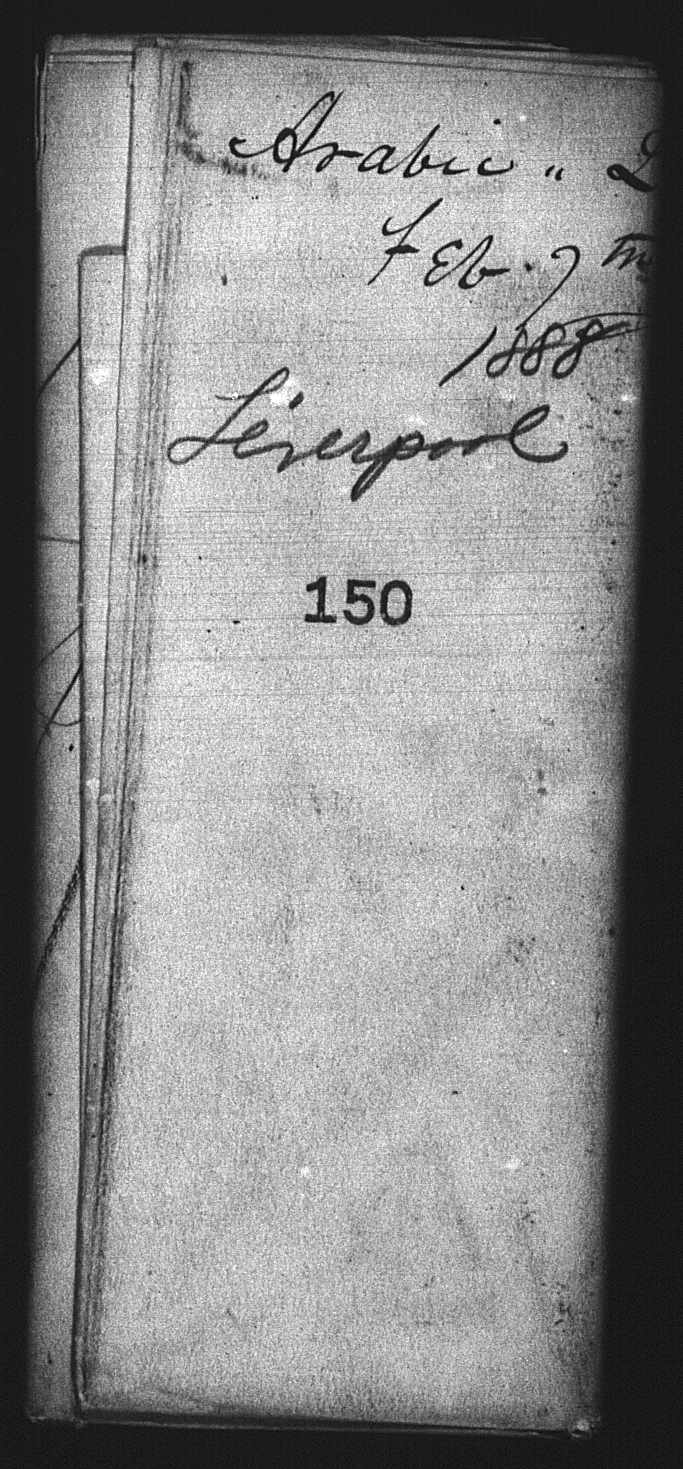 Arabic "
Feb. 7th
1888
Liverpool
150